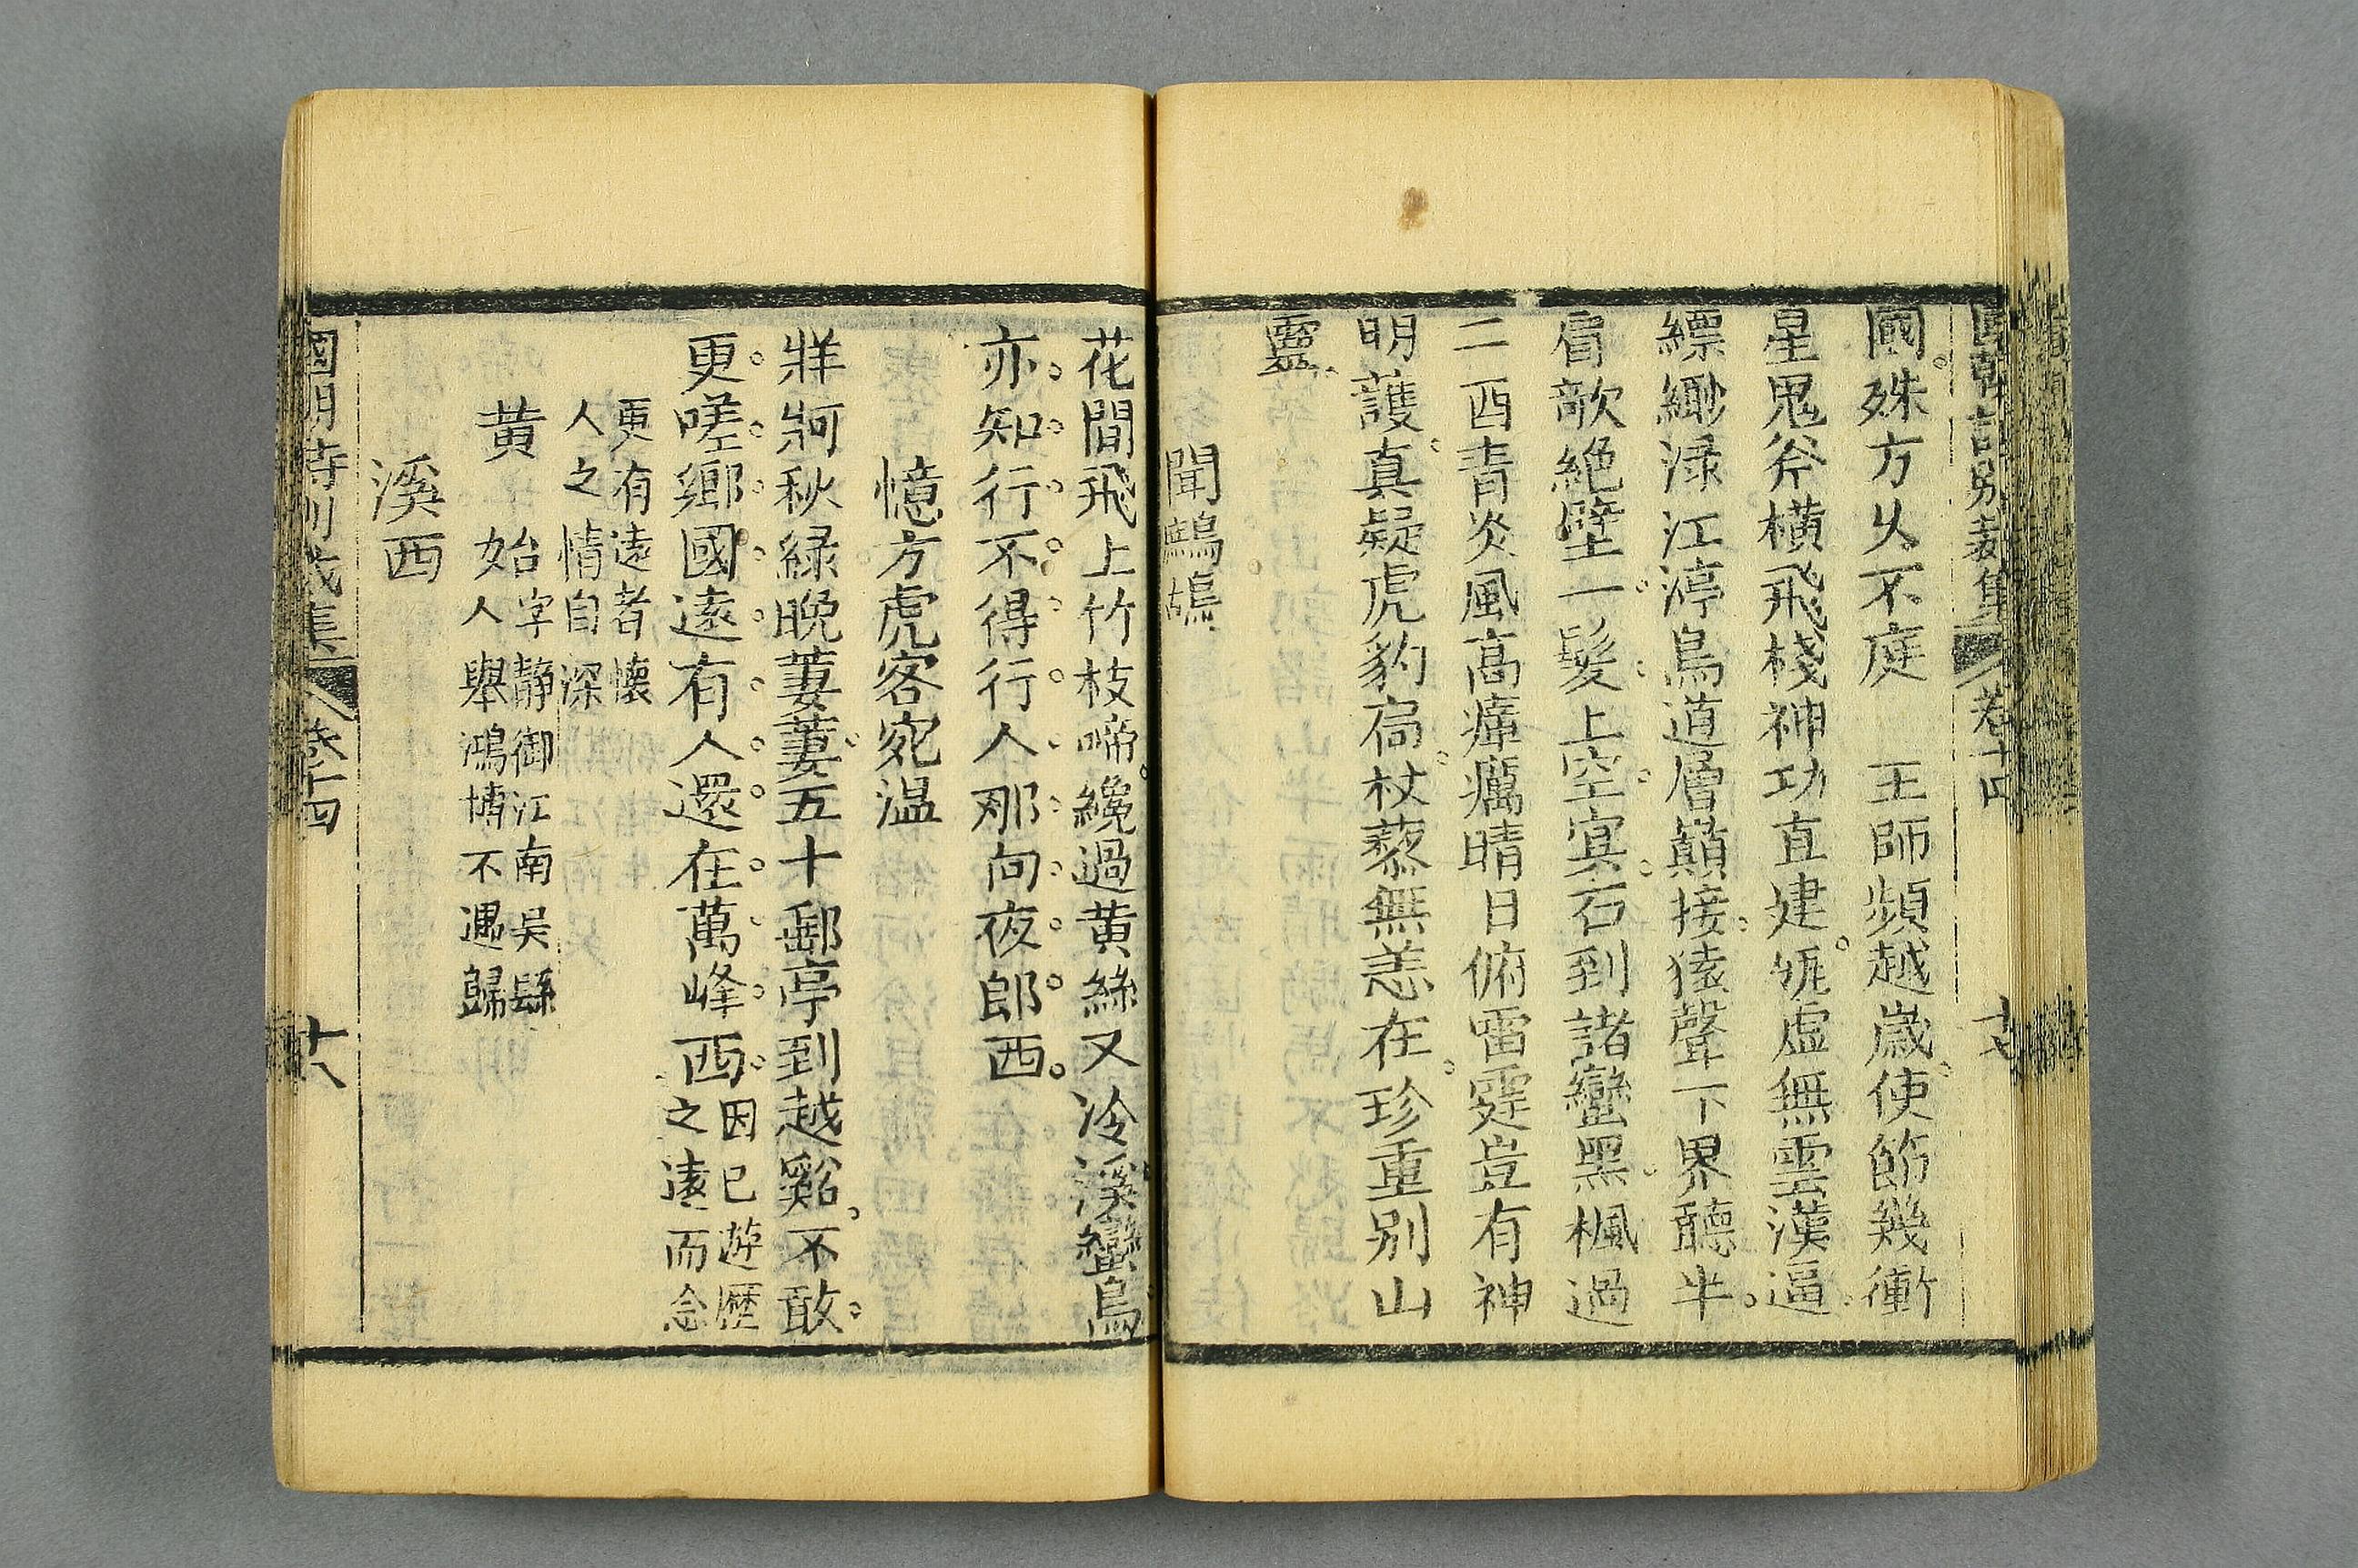 國朝詩別裁集 卷十四
國殊方久不庭 王師頻越嵗使節幾衝
星鬼斧橫飛棧神功直建瓴虛無雲漢逼
縹緲淥江渟鳥道層巔接猿聲下界聽半
肩欹絶壁一髮上空㝠石到諸蠻黑楓過
二酉青炎風高瘴癘晴日俯雷霆豈有神
明護真疑虎豹扃杖藜無恙在珍重别山
靈
聞鷓鴣
花間飛上竹枝啼纔過黄絲又冷溪蠻鳥
亦知行不得行人那向夜郎西
憶方虎客宛温
牂牁秋緑晚萋萋五十郵亭到越谿不敢
更嗟鄉國遠有人還在萬峰西
因已遊歷
之遠而念
更有遠者懷
人之情自深
黄始
字静御江南吴縣
人舉鴻博不遇歸
溪西
國朝詩別裁集 卷十四 十八